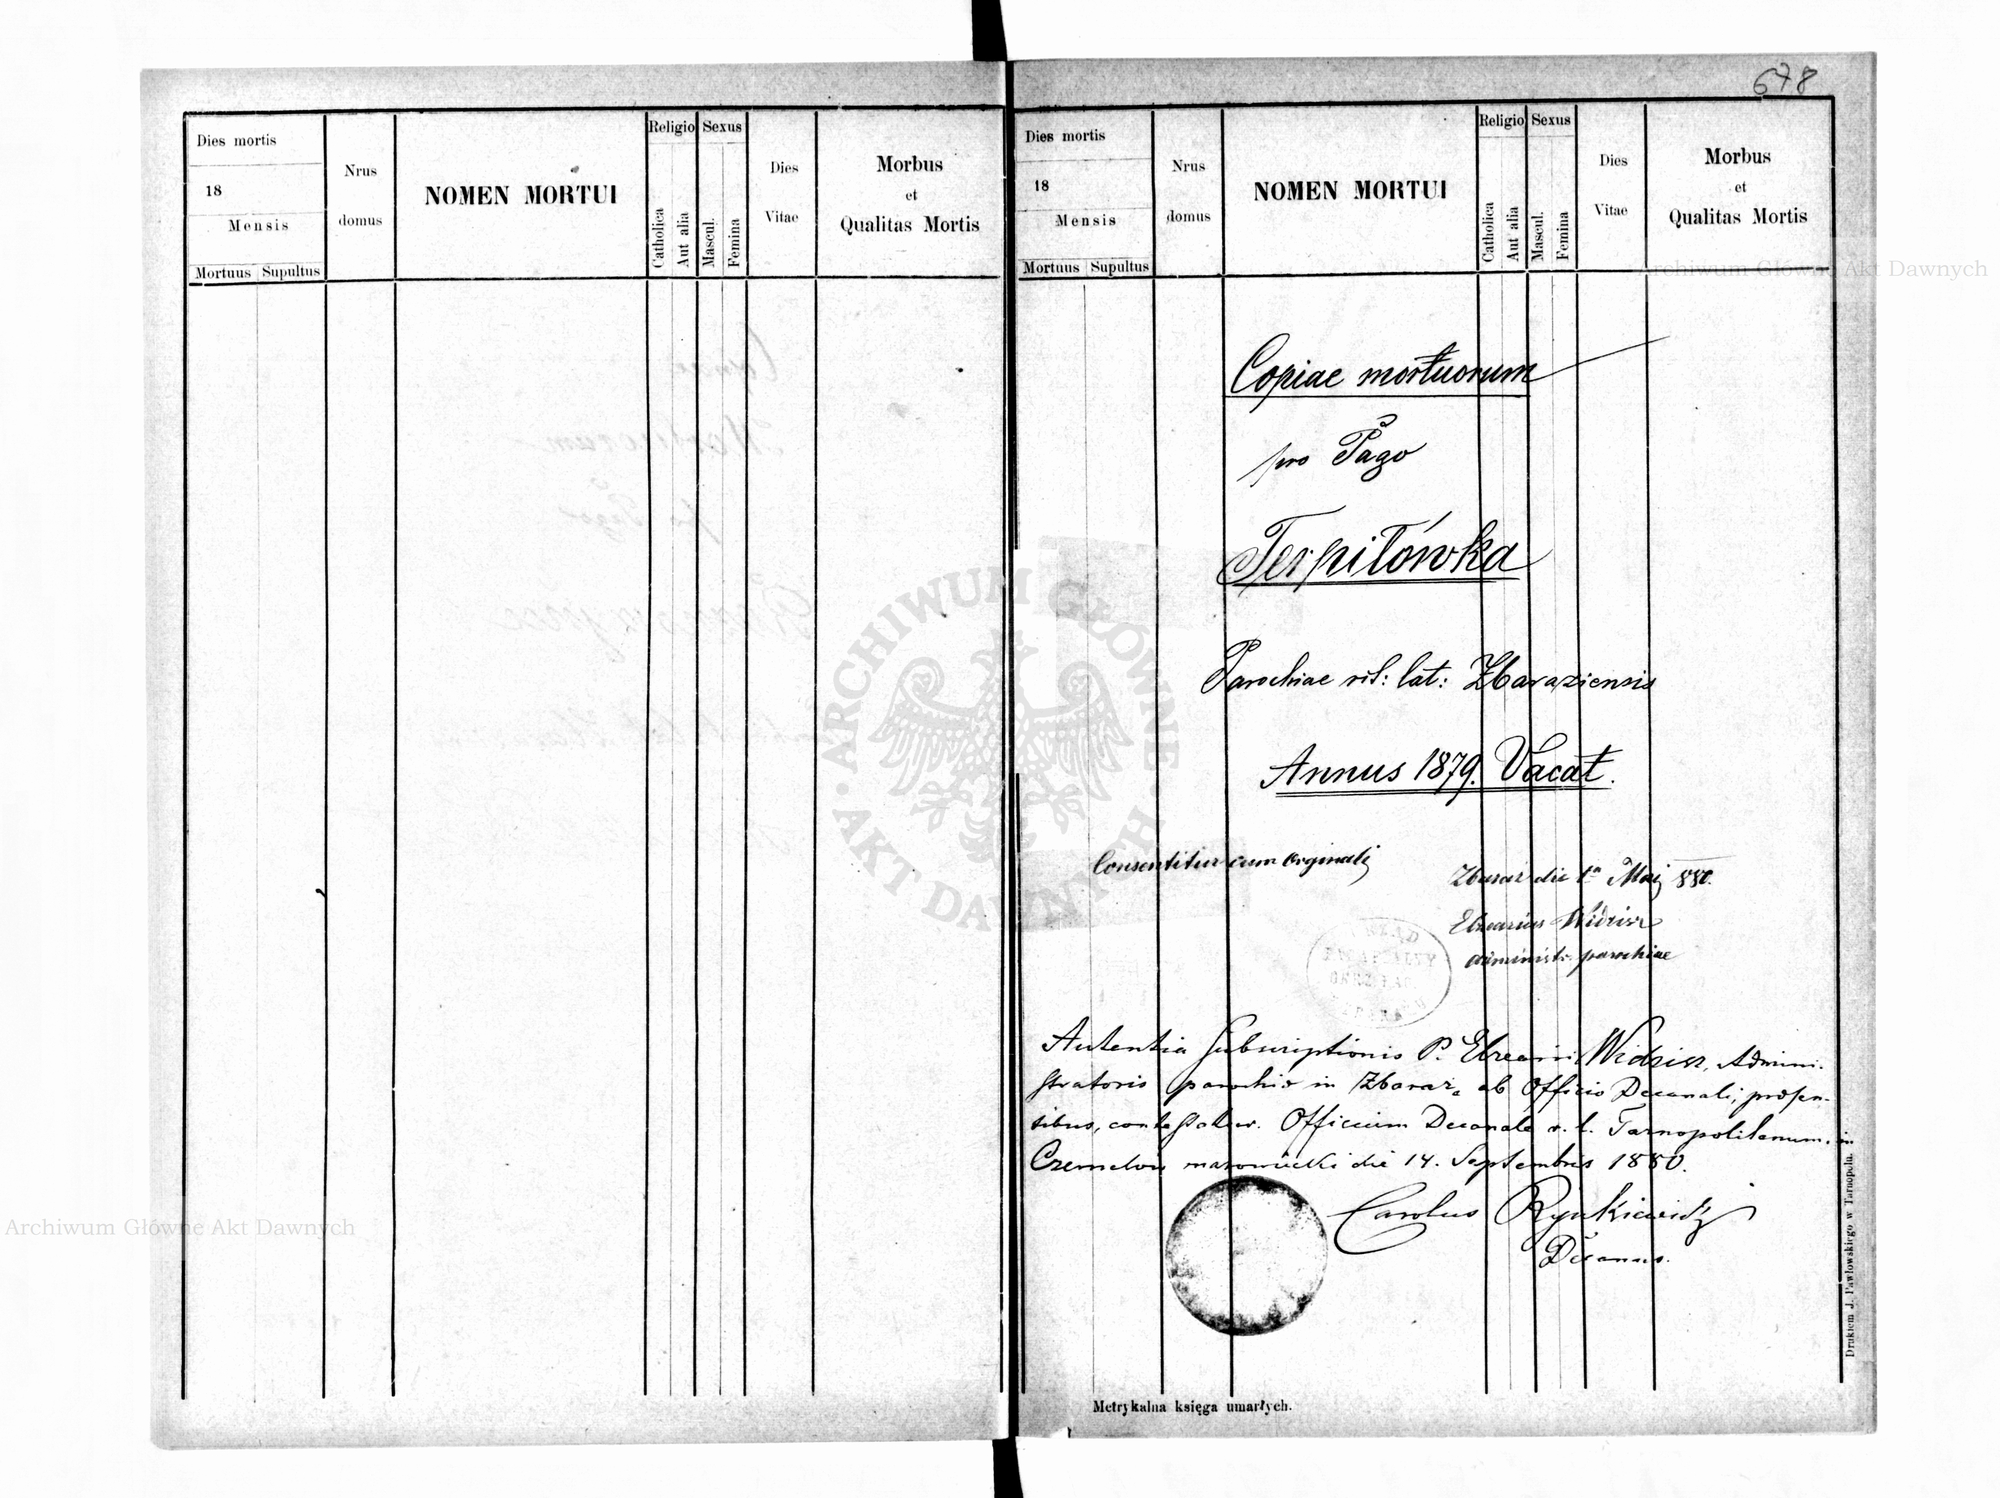 678
Dies mortis
18
Mensis
Mortuus Supultus
Nrus
domus
NOMEN MORTUI
Religio
Catholica
Aut alia
Sexus
Mascul.
Femina
Dies
Vitae
Morbus
et
Qualitas Mortis
Dies mortis
18
Mensis
Mortuus Supultus
Nrus
domus
NOMEN MORTUI
Religio
Catholica
Aut alia
Sexus
Mascul.
Femina
Dies
Vitae
Morbus
et
Qualitas Mortis
Archiwum Główne Akt Dawnych
Copiae mortuorum
pro Pago
Terpiłówka
Parochiae rit: lat: Zbaraziensis
Annus 1879. Vacat.
ARCHIWUM GŁÓWNE AKT DAWNYCH
Consentitur cum orginali
Zbaraż die 1a Maj 880.
Elzearius Widzisz
administr. parochiae
Autentia Subscriptionis P. Elzearii Widzisz, Admini-
stratoris parochiae in Zbaraz, ab Officio Decanali, praesen-
tibus, contestatur. Officium Decanale r. l. Tarnopolitanum. in
mazowiecki die 14. Septembris 1880.
Carolus Rynkiewicz
Decanus.
Archiwum Główne Akt Dawnych
Drukiem J. Pawłowskiego w Tarnopolu.
Metrykalna księga umarłych.